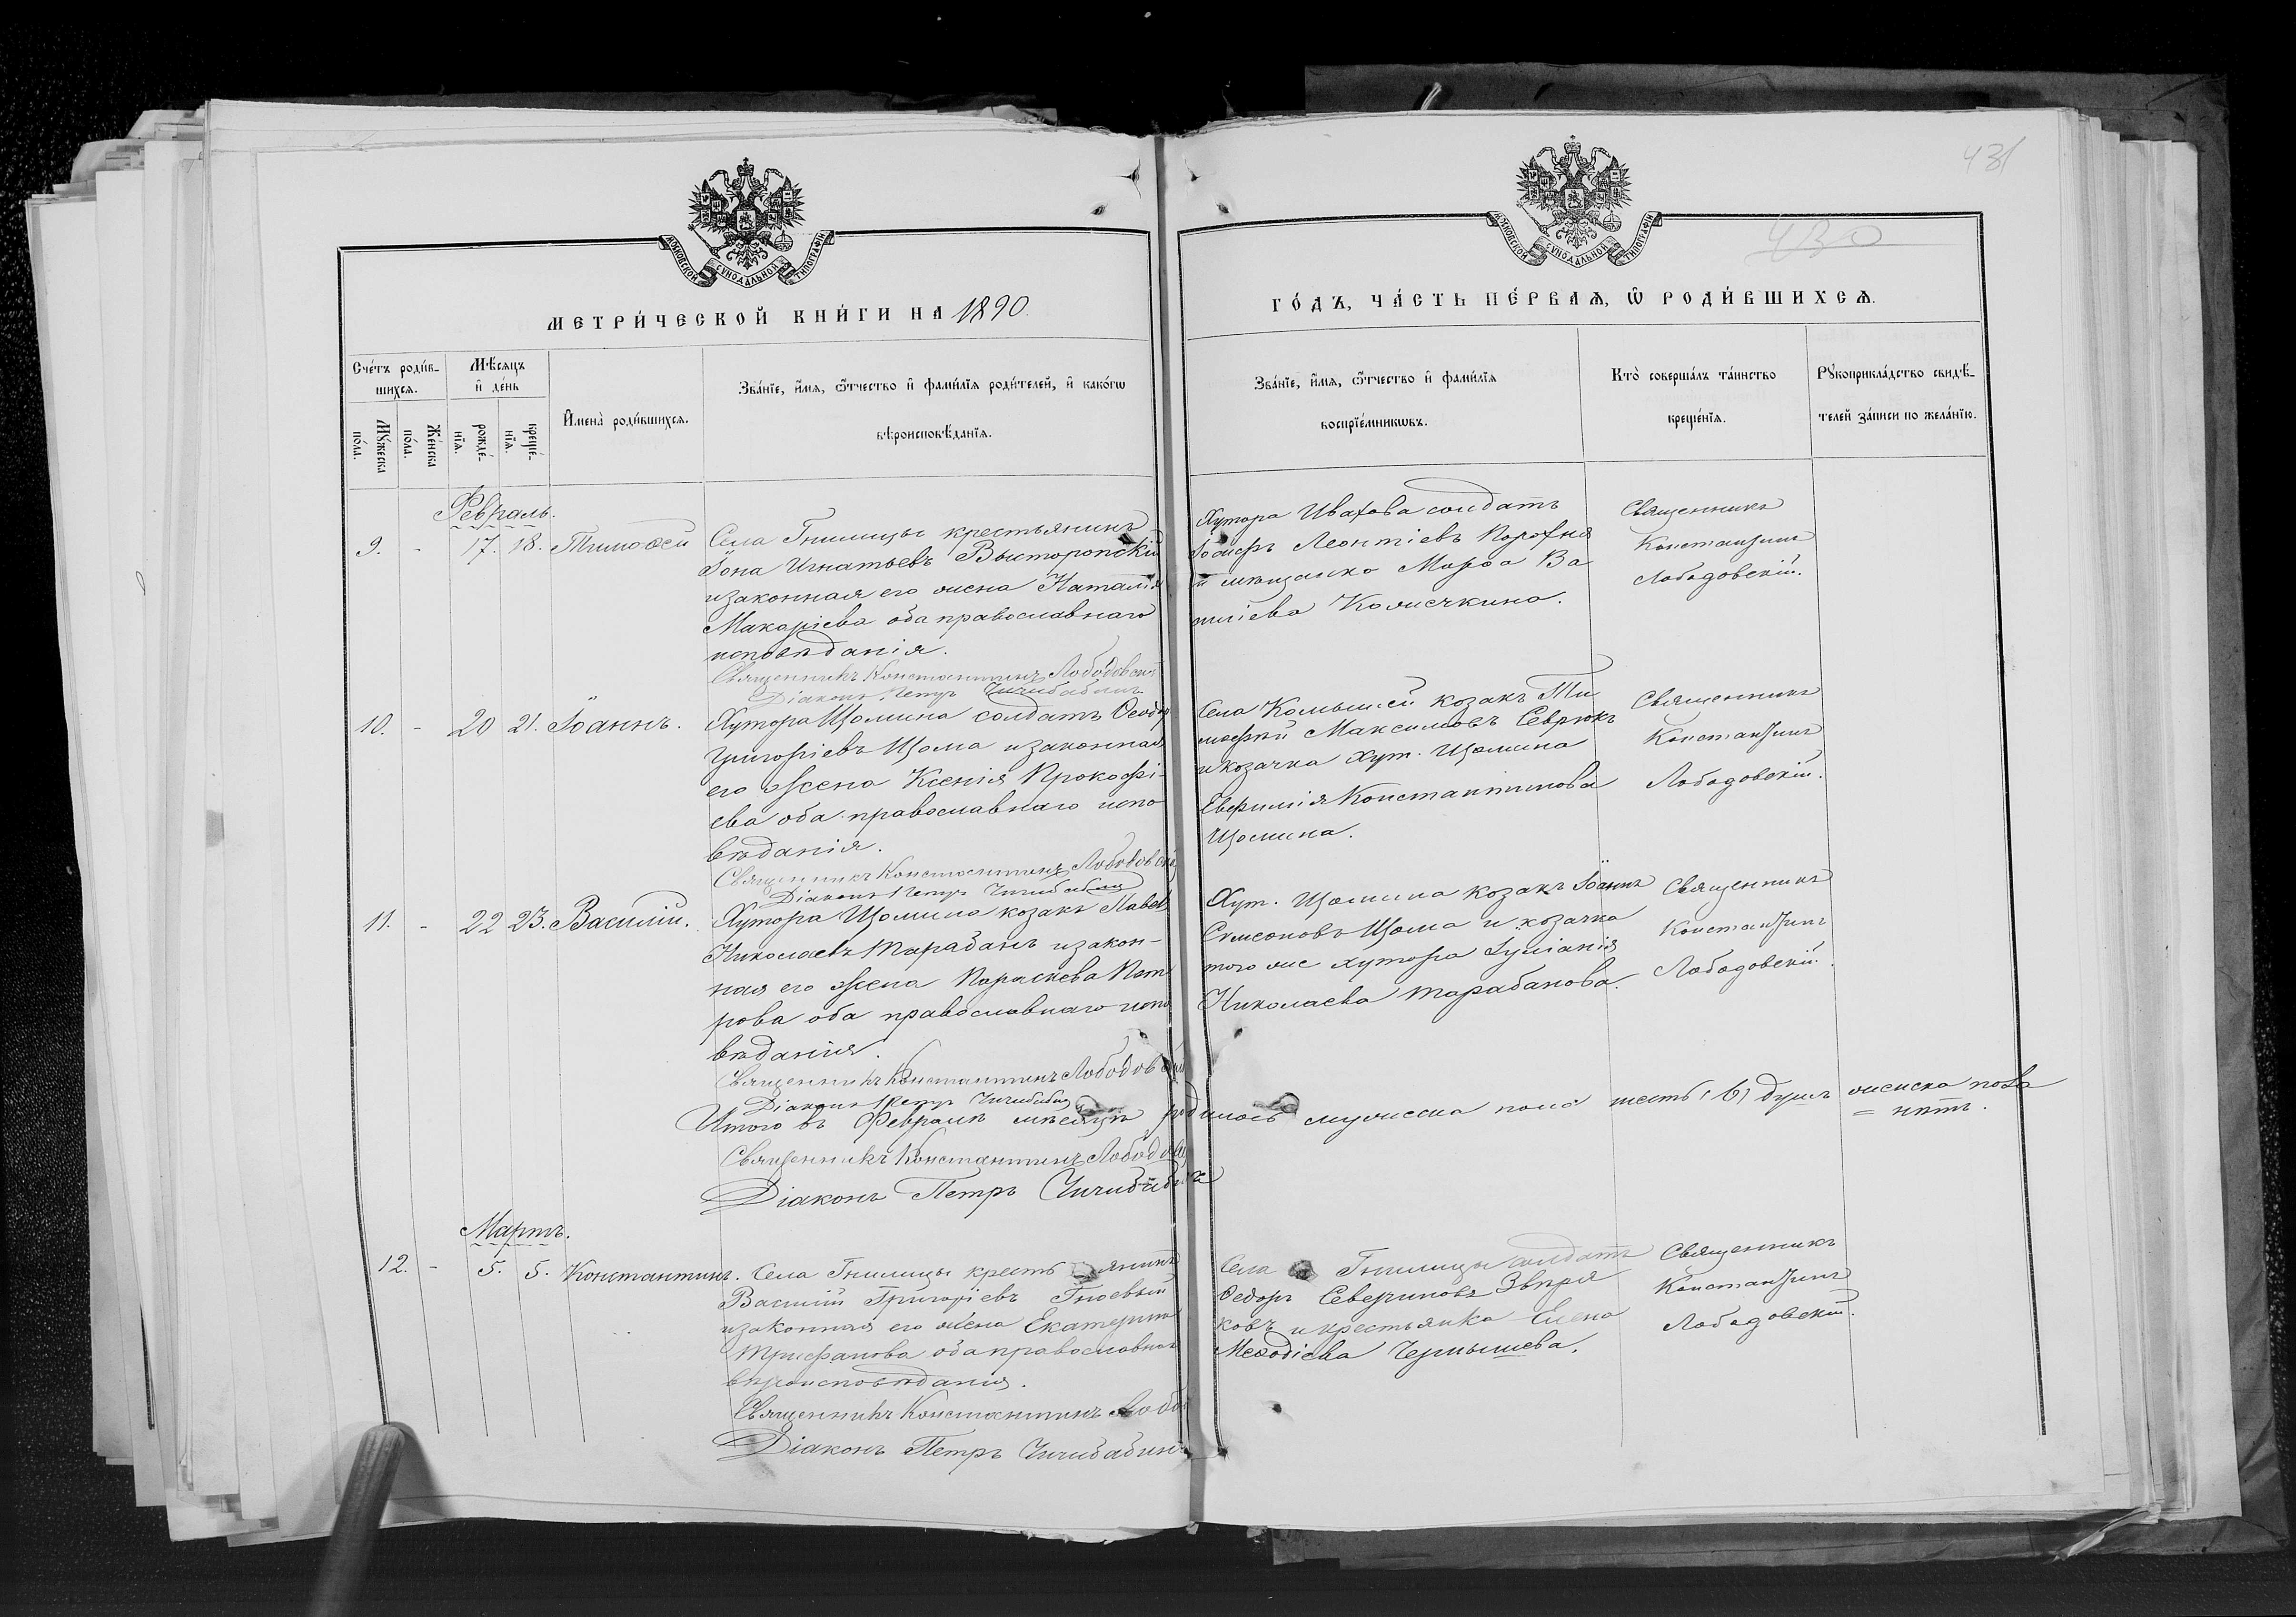 431
430
МОСКОВСКОЙ СѴНОДАЛЬНОЙ ТИПОГРАФІИ
МОСКОВСКОЙ СѴНОДАЛЬНОЙ ТИПОГРАФІИ
МЕТРИ́ЧЕСКОЙ КНИ́ГИ НА 1890.
ГО́ДЪ, ЧА́СТЬ ПЕ́РВАѦ, Ѽ РОДИ́ВШИХСѦ.
Сче́тъ роди́в-
шихсѧ.
Мѣ́сѧцъ
и҆ де́нь
Мꙋ́жеска
по́ла.
Же́нска
по́ла.
рожде́-
нїѧ.
креще́-
нїѧ.
И҆мена̀ роди́вшихсѧ.
Зва́нїе, и҆́мѧ, ѻ҆́тчество и҆ фами́лїѧ роди́телей, и҆ како́гѡ
вѣроисповѣ́данїѧ.
Зва́нїе, и҆́мѧ, ѻ҆́тчество и҆ фами́лїѧ
воспрїе́мникѡвъ.
Кто̀ соверша́лъ та́инство
креще́нїѧ.
Рꙋкоприкла́дство свидѣ́-
телей за́писи по жела́нїю.
Февраль.
9. - 17. 18. Тимоѳей
Села Гнилицы крестьянинъ
Іона Игнатьевъ Выторопскій
и законная его жена Наталія
Макаріева оба православнаго
исповѣданія.
Священникъ Константинъ Лободовскій
Діаконъ Петръ Чичибабинъ
Хутора Ивахова солдатъ
Іосифъ Леонтіевъ
и мѣщанка Марѳа Ва
силіева
Священникъ
Константинъ
Лободовскій.
10. - 20 21. Іоаннъ.
Хутора Щомина солдатъ Ѳеодоръ
Григоріевъ Щома и законная
его жена Ксенія Прокофі-
ева оба православнаго испо
вѣданія.
Священникъ Константинъ Лободовскій
Діаконъ Петръ Чичибабинъ
Села Комышей козакъ Ти
моѳей Максимовъ Севрюкъ
и козачка хут. Щомина
Евфимія Константинова
Щомина.
Священникъ
Константинъ
Лободовскій.
11. - 22 23. Василій.
Хутора Щомина козакъ Павелъ
Николаевъ Тарабанъ и закон-
ная его жена Параскева Пет
рова оба православнаго испо
вѣданія.
Священникъ Константинъ Лободовскій
Діаконъ Петръ Чичибабинъ
Хут. Щомина козакъ Іоаннъ
Симеоновъ Щома и козачка
того же хутора Іуліанія
Николаева Тарабанова.
Священникъ
Константинъ
Лободовскій.
Итого въ Февралѣ мѣсяцѣ родилось мужеска пола шесть (6) душъ женска пола
= нѣтъ.
Священникъ Константинъ Лободовскій
Діаконъ Петръ Чичибабинъ
Мартъ.
12. - 5. 5. Константинъ.
Села Гнилицы крестьянинъ
Василій Григоріевъ Гноевый
и законная его жена Екатерина
Трифанова оба православнаго
вѣроисповѣданія.
Священникъ Константинъ Лободо
Діаконъ Петръ Чичибабинъ
Села Гнилицы солдатъ
Ѳедоръ Севериновъ Звѣря
ковъ и крестьянка Елена
Меѳодіева Чернышева.
Священникъ
Константинъ
Лободовскій.